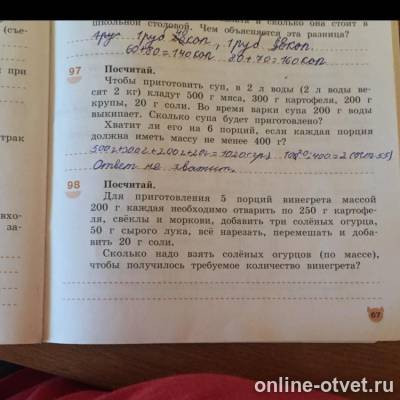 школьной столовой. Чем объясняется эта разница?
60+80=140коп 80+70=160коп
97 Посчитай.
Чтобы приготовить суп, в 2 л воды (2 л воды ве-
сят 2 кг) кладут 500 г мяса, 300 г картофеля, 200 г
крупы, 20 г соли. Во время варки супа 200 г воды
выкипает. Сколько супа будет приготовлено?
Хватит ли его на 6 порций, если каждая порция
должна иметь массу не менее 400 г?
Ответ не хватит.
98 Посчитай.
Для приготовления 5 порций винегрета массой
200 г каждая необходимо отварить по 250 г картофе-
ля, свёклы и моркови, добавить три солёных огурца,
50 г сырого лука, всё нарезать, перемешать и доба-
вить 20 г соли.
Сколько надо взять солёных огурцов (по массе),
чтобы получилось требуемое количество винегрета?
67
(съе-
при
трак
вхо-
за-
online-otvet.ru